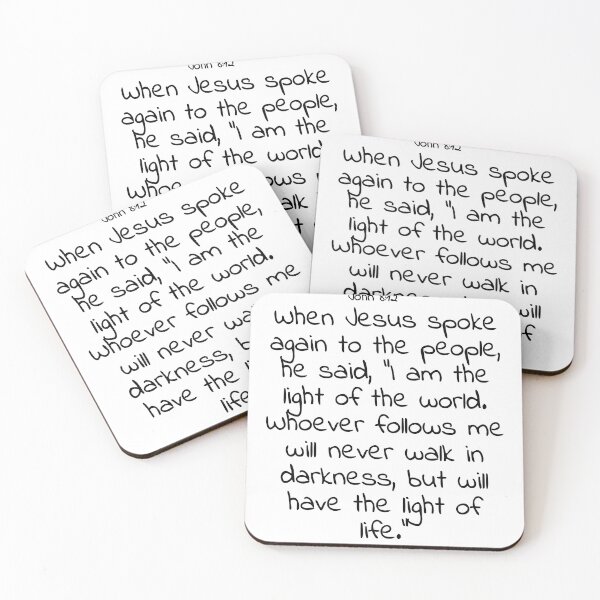 John 8:12
When Jesus spoke
again to the people,
he said, "I am the
light of the world
follows
walk
John 8:12
When Jesus spoke
again to the people,
he said, "I am the
light of the world.
Whoever follows me
will never walk in
will
John 8:12
When Jesus spoke
again to the people,
he said, "I am the
light of the world.
Whoever follows me
will never
darkness,
have the
life
John 8:12
When Jesus spoke
again to the people,
he said, "I am the
light of the world.
Whoever follows me
will never walk in
darkness, but will
have the light of
life."